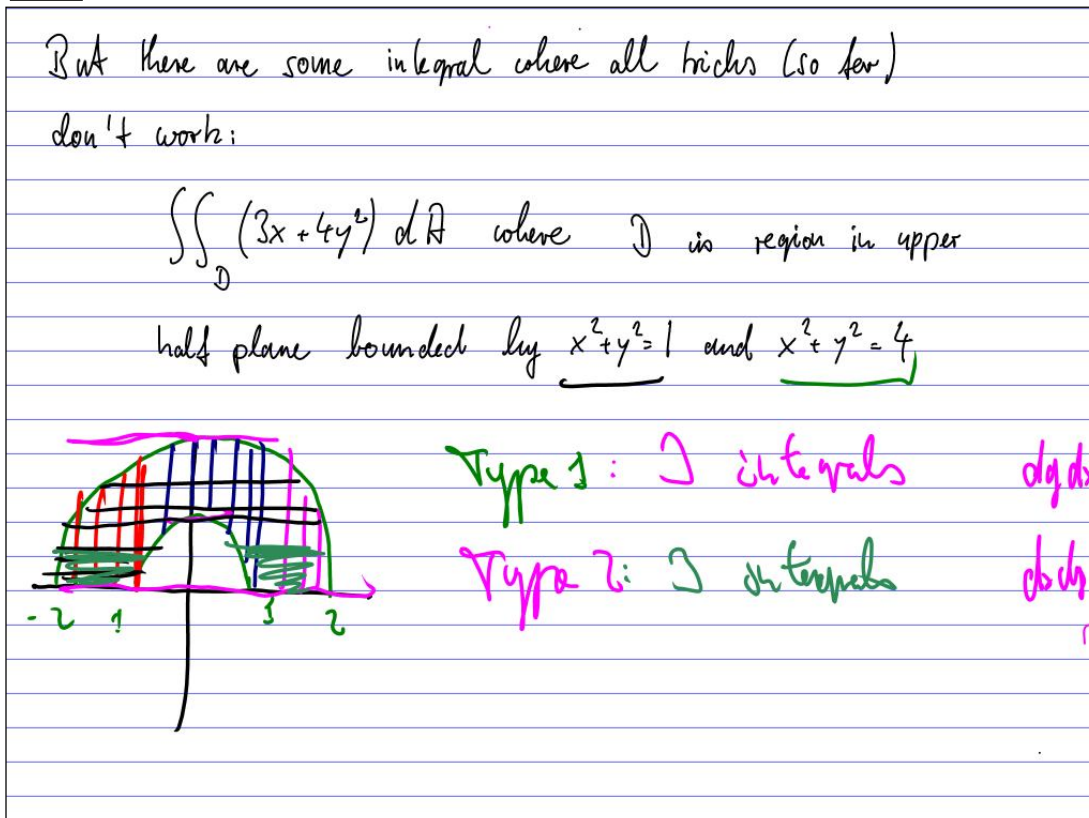 But there are some integral where all tricks (so far)
don't work:
∬_D (3x + 4y²) dA where D is region in upper
half plane bounded by x²+y²=1 and x²+y²=4
Type 1: 3 integrals dydx
Type 2: 3 integrals dxdy
-2 1 1 2